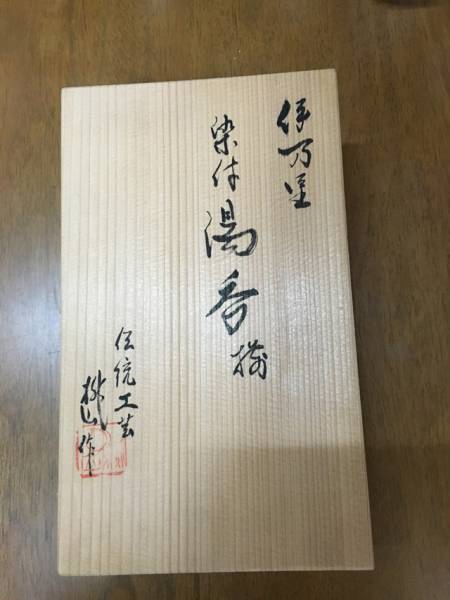 伊万里
染付湯呑揃
伝統工芸
桃山作